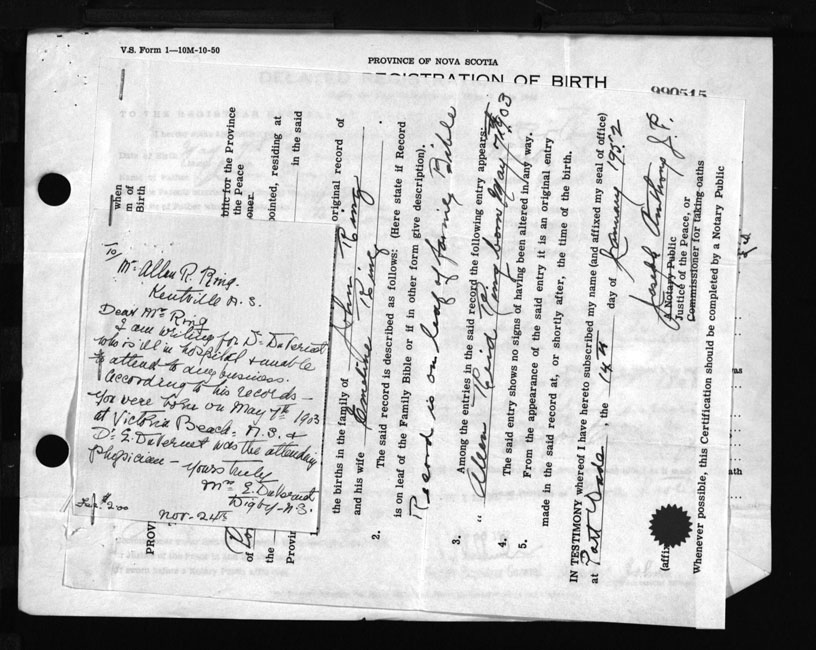 V.S. Form 1—10M-10-50
PROVINCE OF NOVA SCOTIA
DELAYED REGISTRATION OF BIRTH
990515
To
Mr Allen R. Ring.
Kentville N.S.
Dear Mr Ring
I am writing for Dr DuVernet
who is ill in hospital & unable
to attend to any business.
According to his records —
you were born on May 7th 1903
at Victoria Beach. N.S. &
Dr E. DuVernet was the attending
physician — Yours truly
Mrs E. DuVernet
Digby - N.S.
Nov. 24th
Fee. $2.00
when
m of
Birth
blic for the Province
the Peace
oner.
pointed, residing at
in the said
PROV
of
the
Provin
1.
original record of
the births in the family of John Ring
and his wife Emeline Ring.
2. The said record is described as follows: (Here state if Record
is on leaf of the Family Bible or if in other form give description).
Record is on leaf of family Bible
3. Among the entries in the said record the following entry appears:
" Allen Reid Ring born May 7th 1903
4. The said entry shows no signs of having been altered in any way.
5. From the appearance of the said entry it is an original entry
made in the said record at, or shortly after, the time of the birth.
IN TESTIMONY whereof I have hereto subscribed my name (and affixed my seal of office)
at Port Wade, the 14th day of January 1952
Joseph Anthony J.P.
A Notary Public
Justice of the Peace, or
Commissioner for taking oaths
(affix
Whenever possible, this Certification should be completed by a Notary Public